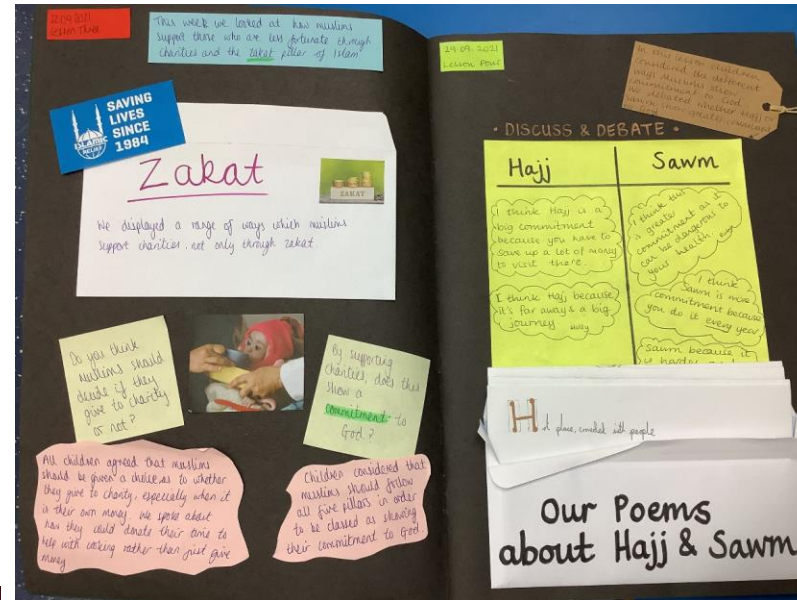 22.09.2021
Lesson Three
This week we looked at how muslims
support those who are less fortunate through
charities and the zakat pillar of Islam
SAVING
LIVES
SINCE
1984
ISLAMIC
RELIEF
Zakat
ZAKAT
We displayed a range of ways which muslims
support charities, not only through zakat
Do you think
muslims should
decide if they
give to charity
or not?
By supporting
charities, does this
show a
commitment to
God?
All children agreed that muslims
should be given a choice as to whether
they give to charity, especially when it
is their own money. We spoke about
how they could donate their time to
help with cooking rather than just give
money
Children considered that
muslims should follow
all five pillars in order
to be classed as showing
their commitment to God.
29.09.2021
Lesson Four
In this lesson children
considered the different
ways Muslims show
commitment to God.
We debated whether Hajj or
sawm
DISCUSS & DEBATE
Hajj
Sawm
I think Hajj is a
big commitment
because you have to
save up a lot of money
to visit there.
I think Hajj because
it's far away & a big
journey
I think
is greater
commitment as it
can be dangerous to
your health.
I think
Sawm is more
commitment because
you do it every year
Sawm because it
Hot place, crowded with people
Our Poems
about Hajj & Sawm